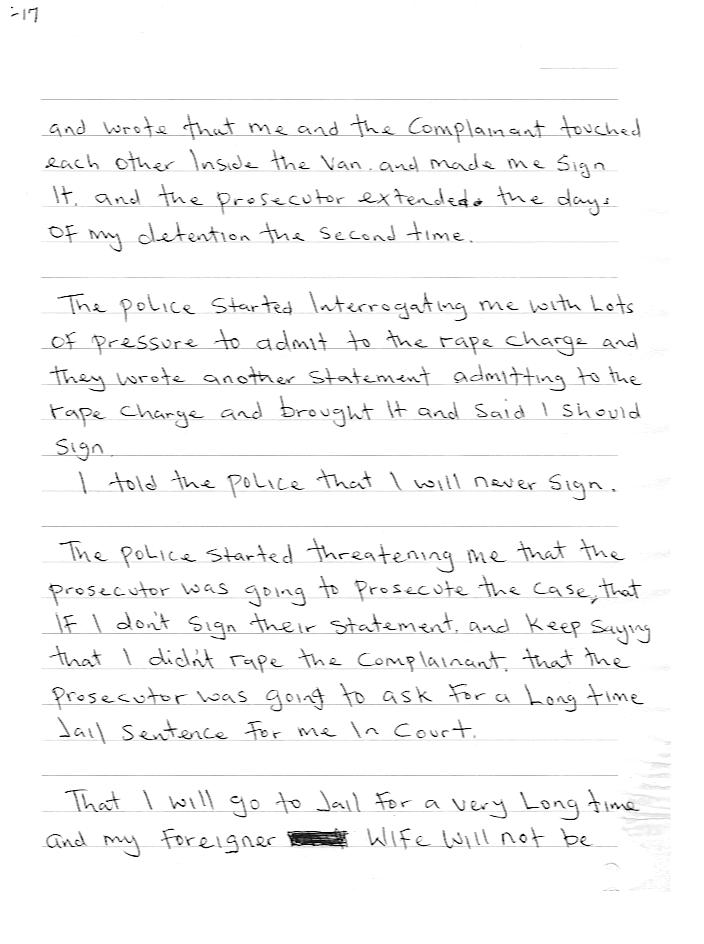 -17
and wrote that me and the Complainant touched
each other Inside the Van. and made me Sign
It. and the prosecutor extended the days
OF my detention the Second time.
The police Started Interrogating me with Lots
OF pressure to admit to the rape charge and
they wrote another Statement admitting to the
rape charge and brought It and Said I Should
Sign
I told the police that I will never Sign.
The police Started threatening me that the
prosecutor was going to Prosecute the Case, that
IF I don't Sign their Statement. and Keep Saying
that I didn't rape the Complainant. that the
Prosecutor was going to ask For a Long time
Jail Sentence For me In Court.
That I will go to Jail For a very Long time
and my Foreigner WIFe Will not be